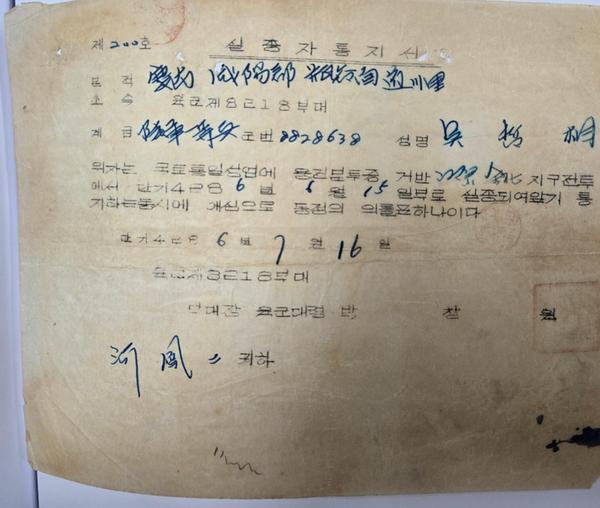 제 200호 실종자통지서
본적 慶南 咸陽郡
소속 육군제8218부대
계급 군번 8828638 성명 吳 哲 相
위자는 국토통일성업에 용전분투중 거반 지구전투
에서 단기4286년 6월 15일부로 실종되여압기 통
지하는동시에 개심으로 동정의 의를표하나이다
단기4286년 7월 16일
육군제8218부대
부대장 육군대령 박 창 원
河 鳳 귀하